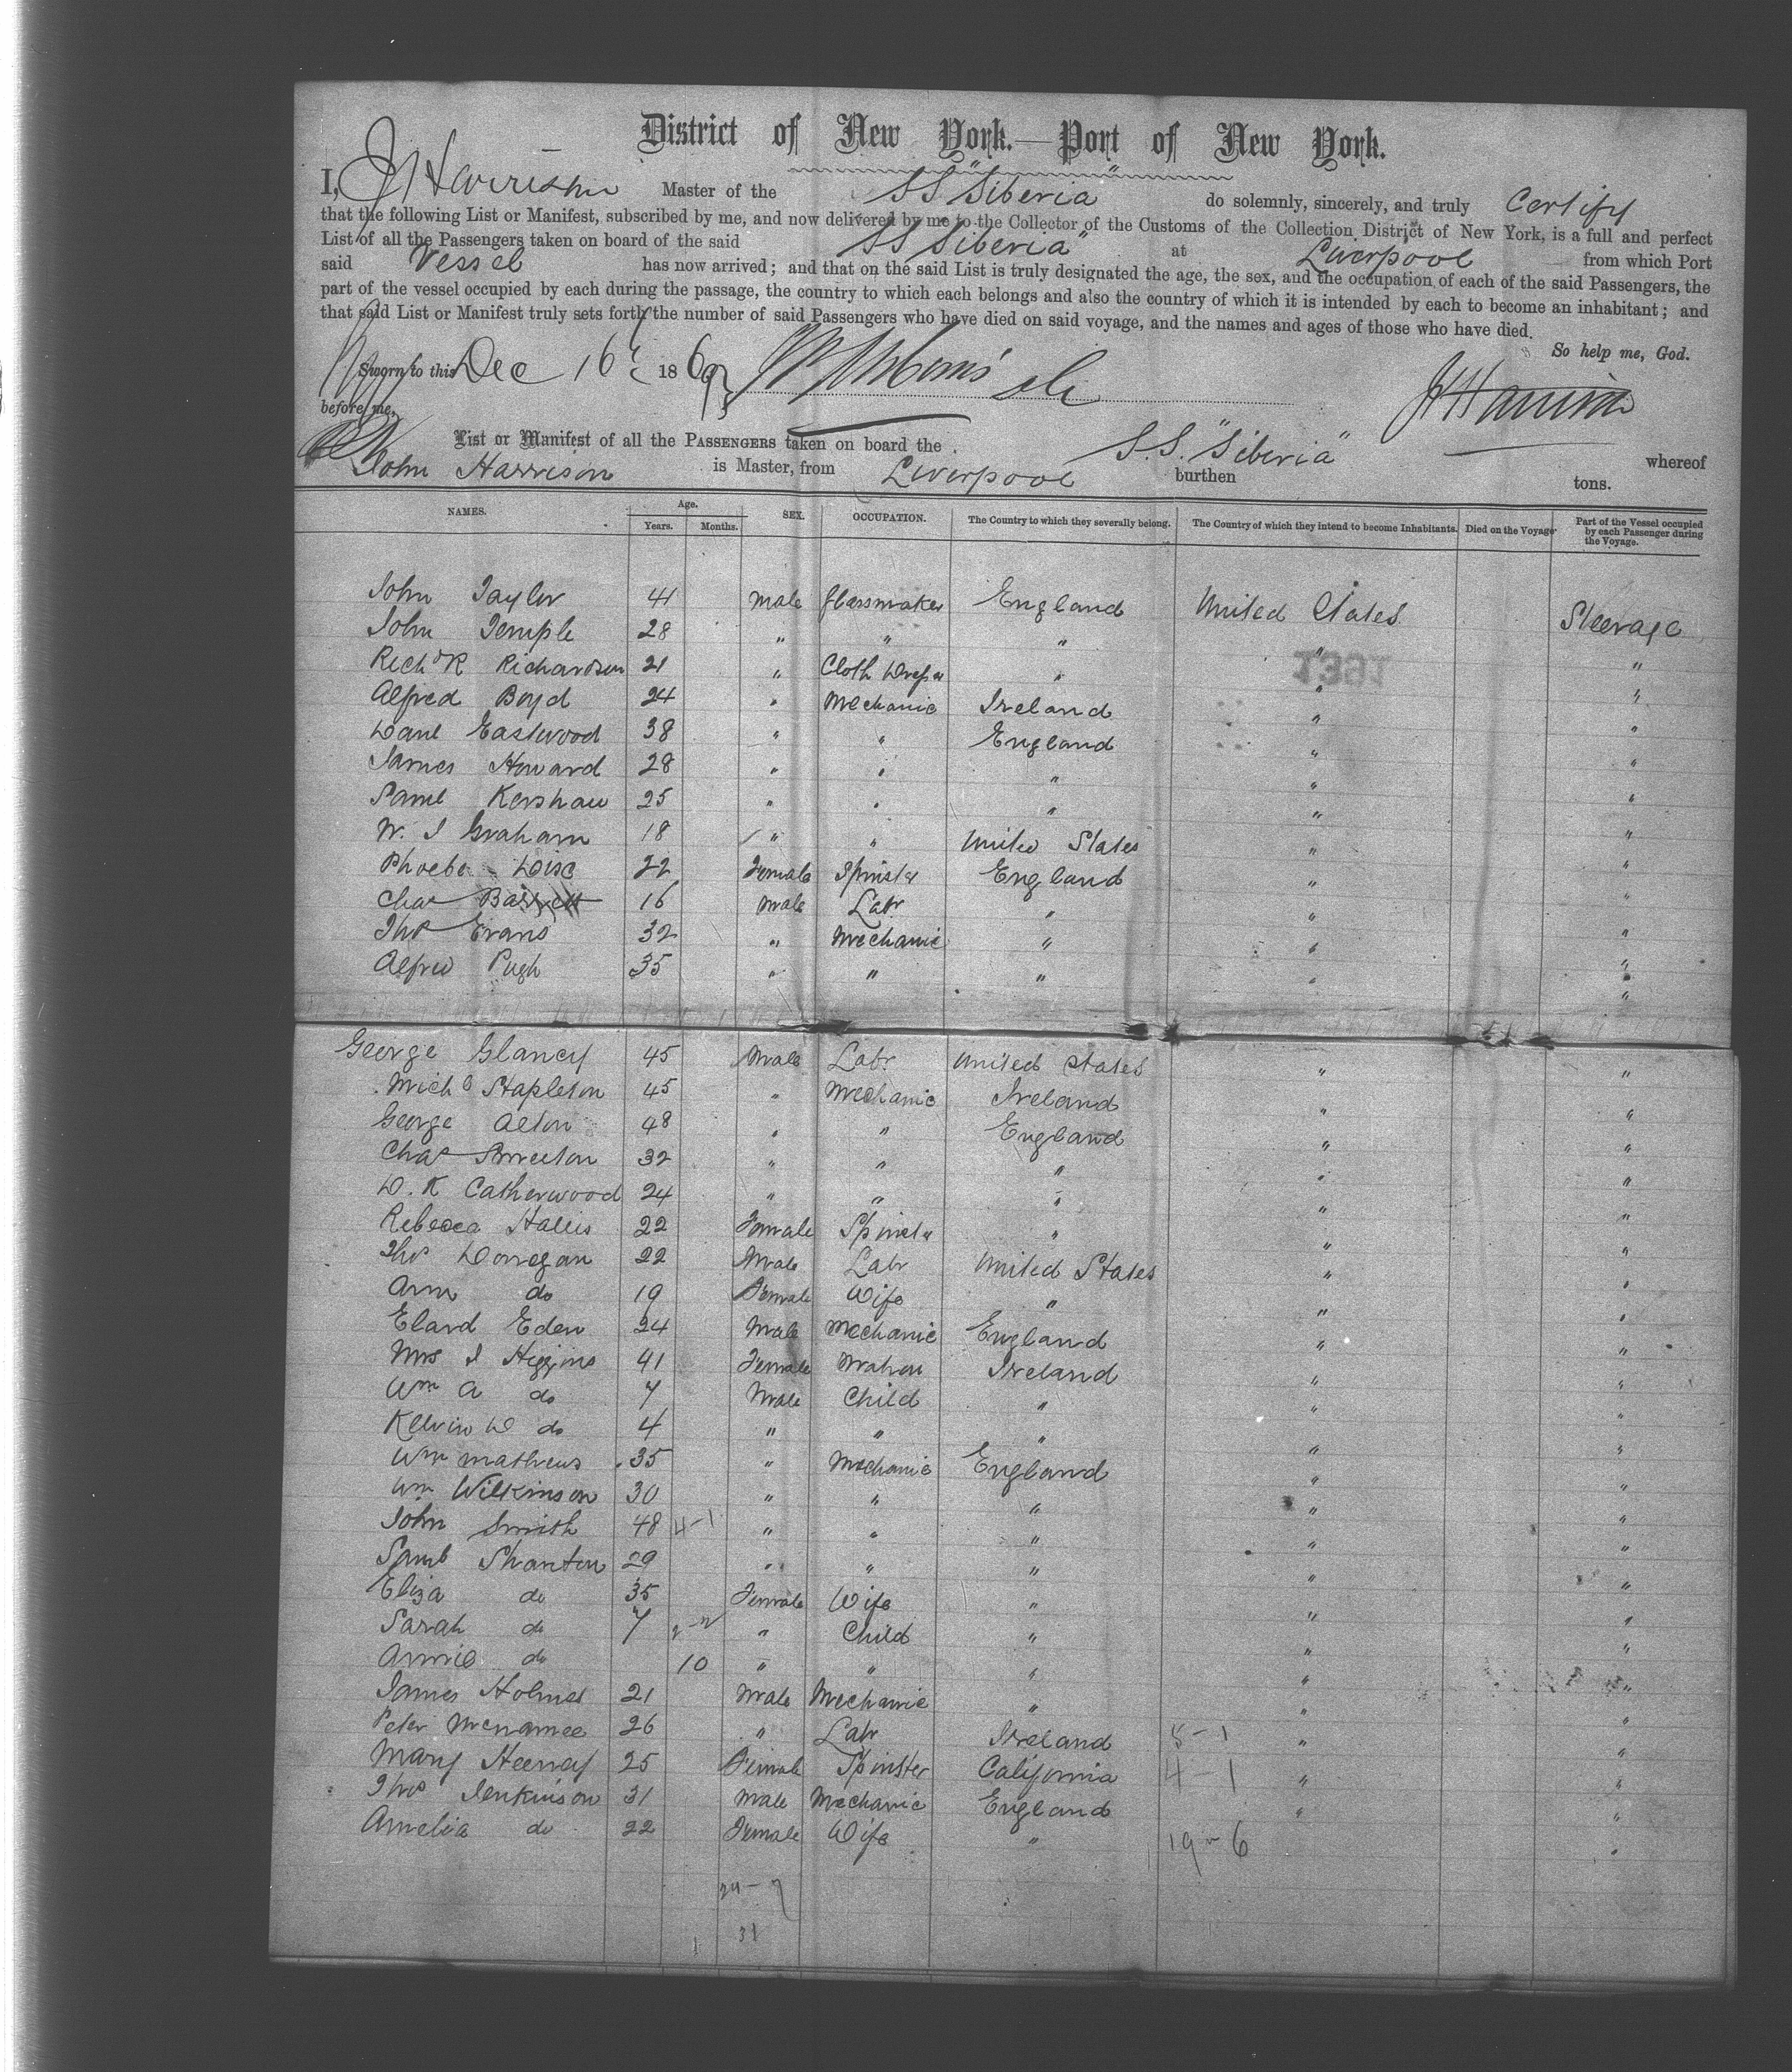 District of New York.—Port of New York.
I, J Harrison Master of the SS "Siberia" do solemnly, sincerely, and truly Certify
that the following List or Manifest, subscribed by me, and now delivered by me to the Collector of the Customs of the Collection District of New York, is a full and perfect
List of all the Passengers taken on board of the said SS Siberia" at Liverpool from which Port
said Vessel has now arrived; and that on the said List is truly designated the age, the sex, and the occupation of each of the said Passengers, the
part of the vessel occupied by each during the passage, the country to which each belongs and also the country of which it is intended by each to become an inhabitant; and
that said List or Manifest truly sets forth the number of said Passengers who have died on said voyage, and the names and ages of those who have died.
So help me, God.
Sworn to this Dec 16th 1869 J Harrison
before me,
List or Manifest of all the PASSENGERS taken on board the S.S. "Siberia" whereof
John Harrison is Master, from Liverpool burthen tons.
NAMES. Age. Years. Months. SEX. OCCUPATION. The Country to which they severally belong. The Country of which they intend to become Inhabitants. Died on the Voyage Part of the Vessel occupied by each Passenger during the Voyage.
John Taylor 41 male Glassmaker England United States Steerage
John Temple 28 " " " " "
Richd R Richardson 21 " Cloth " " "
Alfred Boyd 24 " Mechanic Ireland " "
Danl Eastwood 38 " " England " "
James Howard 28 " " " " "
Saml Kershaw 25 " " " " "
W. J Graham 18 " " United States " "
Phoebe 22 Female Spinstr England " "
Chas Barrett 16 male Labr " " "
Thos Evans 32 " Mechanic " " "
Alfred Pugh 35 " " " " "
George Glancy 45 Male Labr United States " "
Michl Stapleton 45 " Mechanic Ireland " "
George Alton 48 " " England " "
Chas Smeeton 32 " " " " "
D. K Catherwood 24 " " " " "
Rebecca Hallis 22 Female Spinstr " " "
Thos Donegan 22 Male Labr United States " "
Ann do 19 Female Wife " " "
Elard Eden 24 Male Mechanic England " "
Mrs J Higgins 41 Female Matron Ireland " "
Wm A do 7 Male Child " " "
Kelvin D do 4 " " " " "
Wm Mathews 35 " Mechanic England " "
Wm Wilkinson 30 " " " " "
John Smith 48 4-1 " " " " "
Saml Shanton 29 " " " " "
Eliza do 35 Female Wife " " "
Sarah do 7 " Child " " "
Annie do 10 " " " " "
James Holmes 21 Male Mechanic " " "
Peter McNamee 26 " Labr Ireland 5-1 " "
Mary Heeney 25 Female Spinster California 4-1 " "
Thos Jenkinson 31 Male Mechanic England " "
Amelia do 22 Female Wife " 19 - 6 "
31